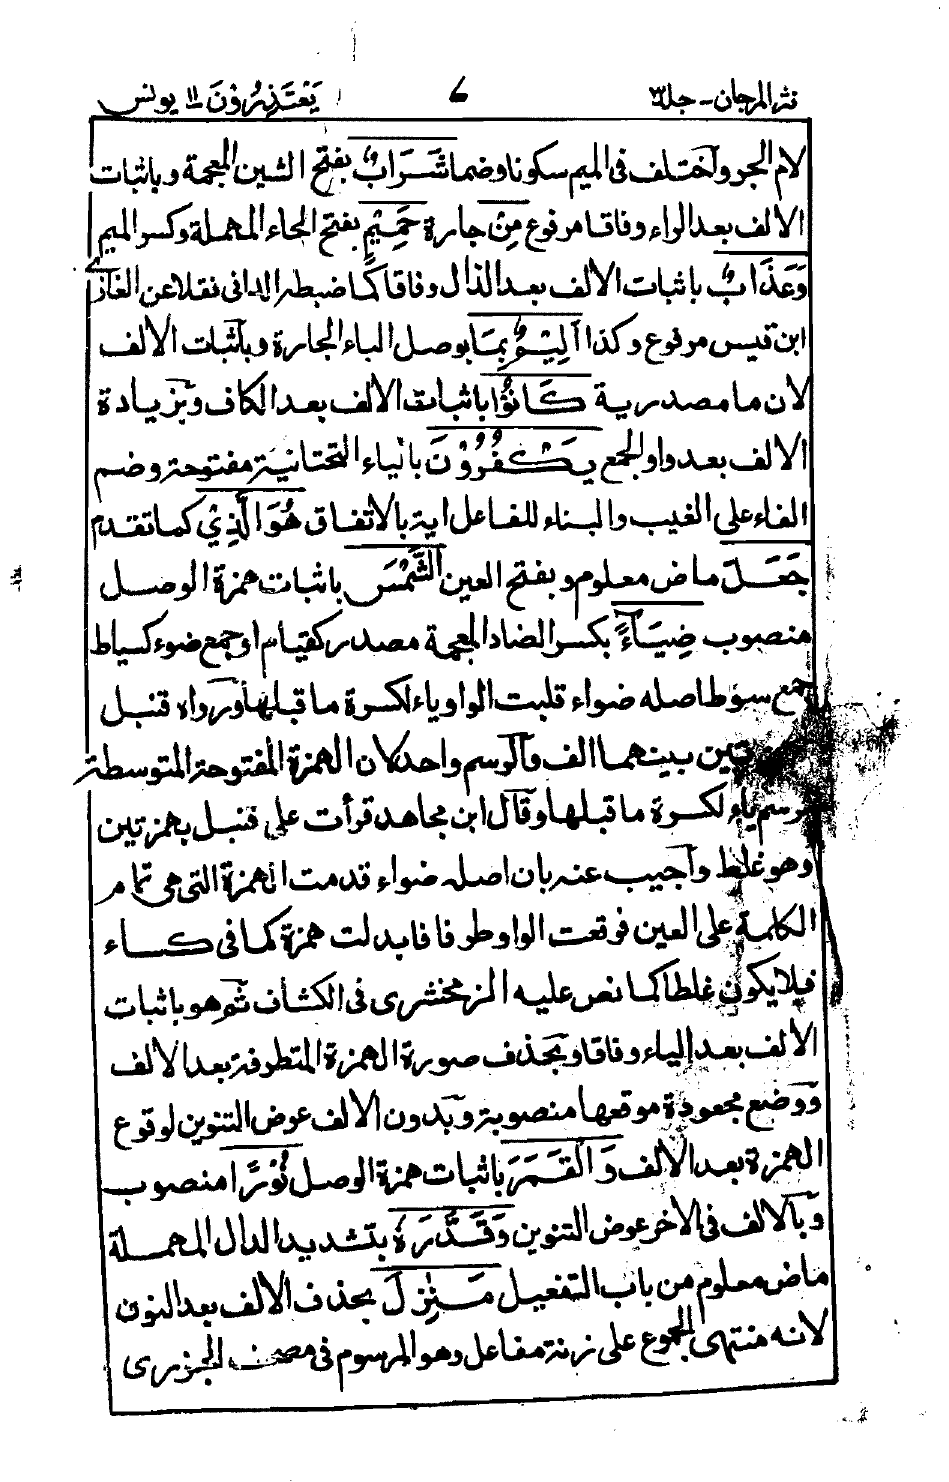 نثر المرجان - جلد ٣
٦
يَعْتَذِرُوْنَ ١١ يونس
لام الجر واختلف فى الميم سكونا وضما شَرَابٌ بفتح الشين المعجمة وباثبات
الالف بعد الراء وفاقا مرفوع مِنْ جارة حَمِيْمٍ بفتح الحاء المهملة وكسر الميم
وَعَذَابٌ باثبات الالف بعد الذال وفاقا كما ضبطه الدانى نقلا عن الغازى
ابن قيس مرفوع وكذا اَلِيْمٌ بِمَا بوصل الباء الجارة وباثبات الالف
لان ما مصدرية كَانُوْا باثبات الالف بعد الكاف وبزيادة
الالف بعد واو الجمع يَكْفُرُوْنَ بالياء التحتانية مفتوحة وضم
الفاء على الغيب والبناء للفاعل اية بالاتفاق هُوَ الَّذِيْ كما تقدم
جَعَلَ ماض معلوم وبفتح العين الشَّمْسَ باثبات همزة الوصل
منصوب ضِيَآءً بكسر الضاد المعجمة مصدر كقيام او جمع ضوء كسياط
جمع سوط اصله ضواء قلبت الواو ياء لكسرة ما قبلها ورواه قنبل
بينهما الف والرسم واحد لان الهمزة المفتوحة المتوسطة
ترسم ياء لكسرة ما قبلها وقال ابن مجاهد قرأت على قنبل بهمزتين
وهو غلط واجيب عنه بان اصله ضواء قدمت الهمزة التى هى تمام
الكلمة على العين فوقعت الواو طرفا فابدلت همزة كما فى كساء
فلا يكون غلطا كما نص عليه الزمخشرى فى الكشاف ثم هو باثبات
الالف بعد الياء وفاقا وبحذف صورة الهمزة المتطرفة بعد الالف
ووضع مجعودة موقعها منصوبة وبدون الالف عوض التنوين لوقوع
الهمزة بعد الالف وَالْقَمَرَ باثبات همزة الوصل نُوْرًا منصوب
وبالالف فى الاخر عوض التنوين وَقَدَّرَهٗ بتشديد الدال المهملة
ماض معلوم من باب التفعيل مَنٰزِلَ بحذف الالف بعد النون
لانه منتهى الجموع على زنة مفاعل وهو المرسوم فى مصحف الجزرى